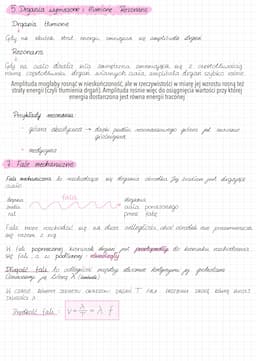 5. Drgania wymuszone i tłumione. Rezonans
Drgania tłumione
Gdy na skutek strat energii zmniejsza się amplituda drgań
Rezonans
Gdy na ciało działa siła zewnętrzna zmieniająca się z częstotliwością
równą częstotliwości drgań własnych ciała, amplituda drgań szybko rośnie
Amplituda mogłaby rosnąć w nieskończoność, ale w rzeczywistości w miarę jej wzrostu rosną też
straty energii (czyli tłumienia drgań). Amplituda rośnie więc do osiągnięcia wartości przy której
energia dostarczona jest równa energii traconej
Przykłady rezonansu
gitara akustyczna → dzięki pudłu rezonansowemu gitara jest
głośniejsza
medycyna
7. Fale mechaniczne
Fala mechaniczna to rozchodzące się drgania ośrodka. Jej źródłem jest drgające
ciało
fala
drgania
źródła
fali
drgania
ciała poruszanego
przez falę
Fale może rozchodzić się na duże odległości, choć ośrodek nie przemieszcza
się razem z nią
W fali poprzecznej kierunek drgań jest prostopadły do kierunku rozchodzenia
się fali, a w podłużnej - równoległy
Długość fali to odległość między
Oznaczamy ją literą λ (lambda)
W czasie równym okresowi drgań T fala
Prędkość fali: v = λ/T = λ · f